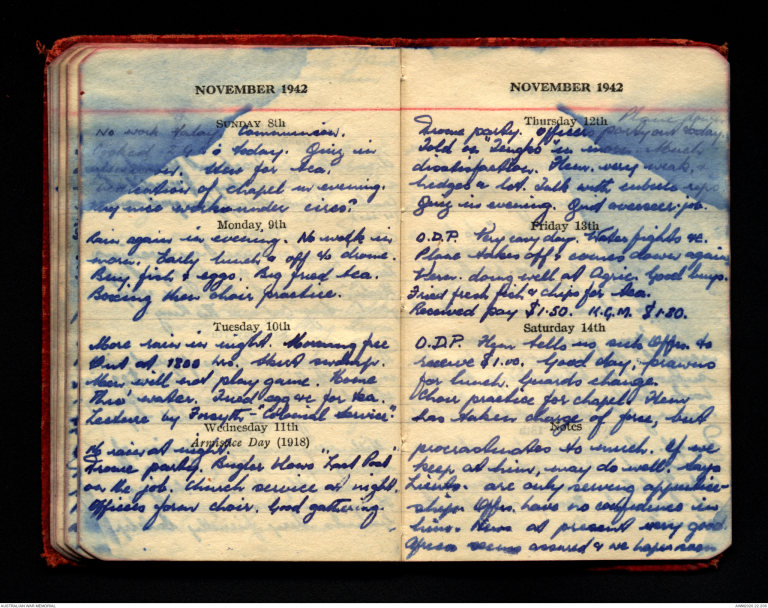 NOVEMBER 1942
SUNDAY 8th
No work today. Communion.
today. Quiz in
Stew for tea.
of chapel in evening.
Monday 9th
Rain again in evening. No work in
morn. Early lunch & off to drome.
Buy fish & eggs. Big fried tea.
Boxing then choir practice.
Tuesday 10th
More rain in night. Morning free
Out at 1300 hrs.
will not play game. Home
Thro' water. Fried egg etc for tea.
Lecture by Forsyth "Colonial Service".
Wednesday 11th
Armistice Day (1918)
No rain at night.
Drome party. Bugler blows "Last Post"
on the job. Church service at night.
Officers form choir. Good gathering.
NOVEMBER 1942
Thursday 12th
Drome party. Officers party out today.
Told in morn. Much
dissatisfaction. Hem. very weak, &
hedges a lot. Talk with
Quiz in evening. Quit overseer job.
Friday 13th
O.D.P. Very easy day. Water fights etc.
Plane takes off & comes down again
Hem. doing well at Agric. Good
Fried fresh fish & chips for tea.
Received pay $1.50. H.G.M. $1.20.
Saturday 14th
O.D.P. Hem tells us sick Offrs. to
receive $1.00. Good day, prawns
for lunch. Guards change.
Choir practice for chapel. Hem
has taken charge of force, but
Notes
procrastinates to much. If we
keep at him, may do well. Says
Lieuts. are only serving apprentice-
ship. Offrs. have no confidence in
him. News at present very good.
Africa seems assured & we hope soon
AUSTRALIAN WAR MEMORIAL